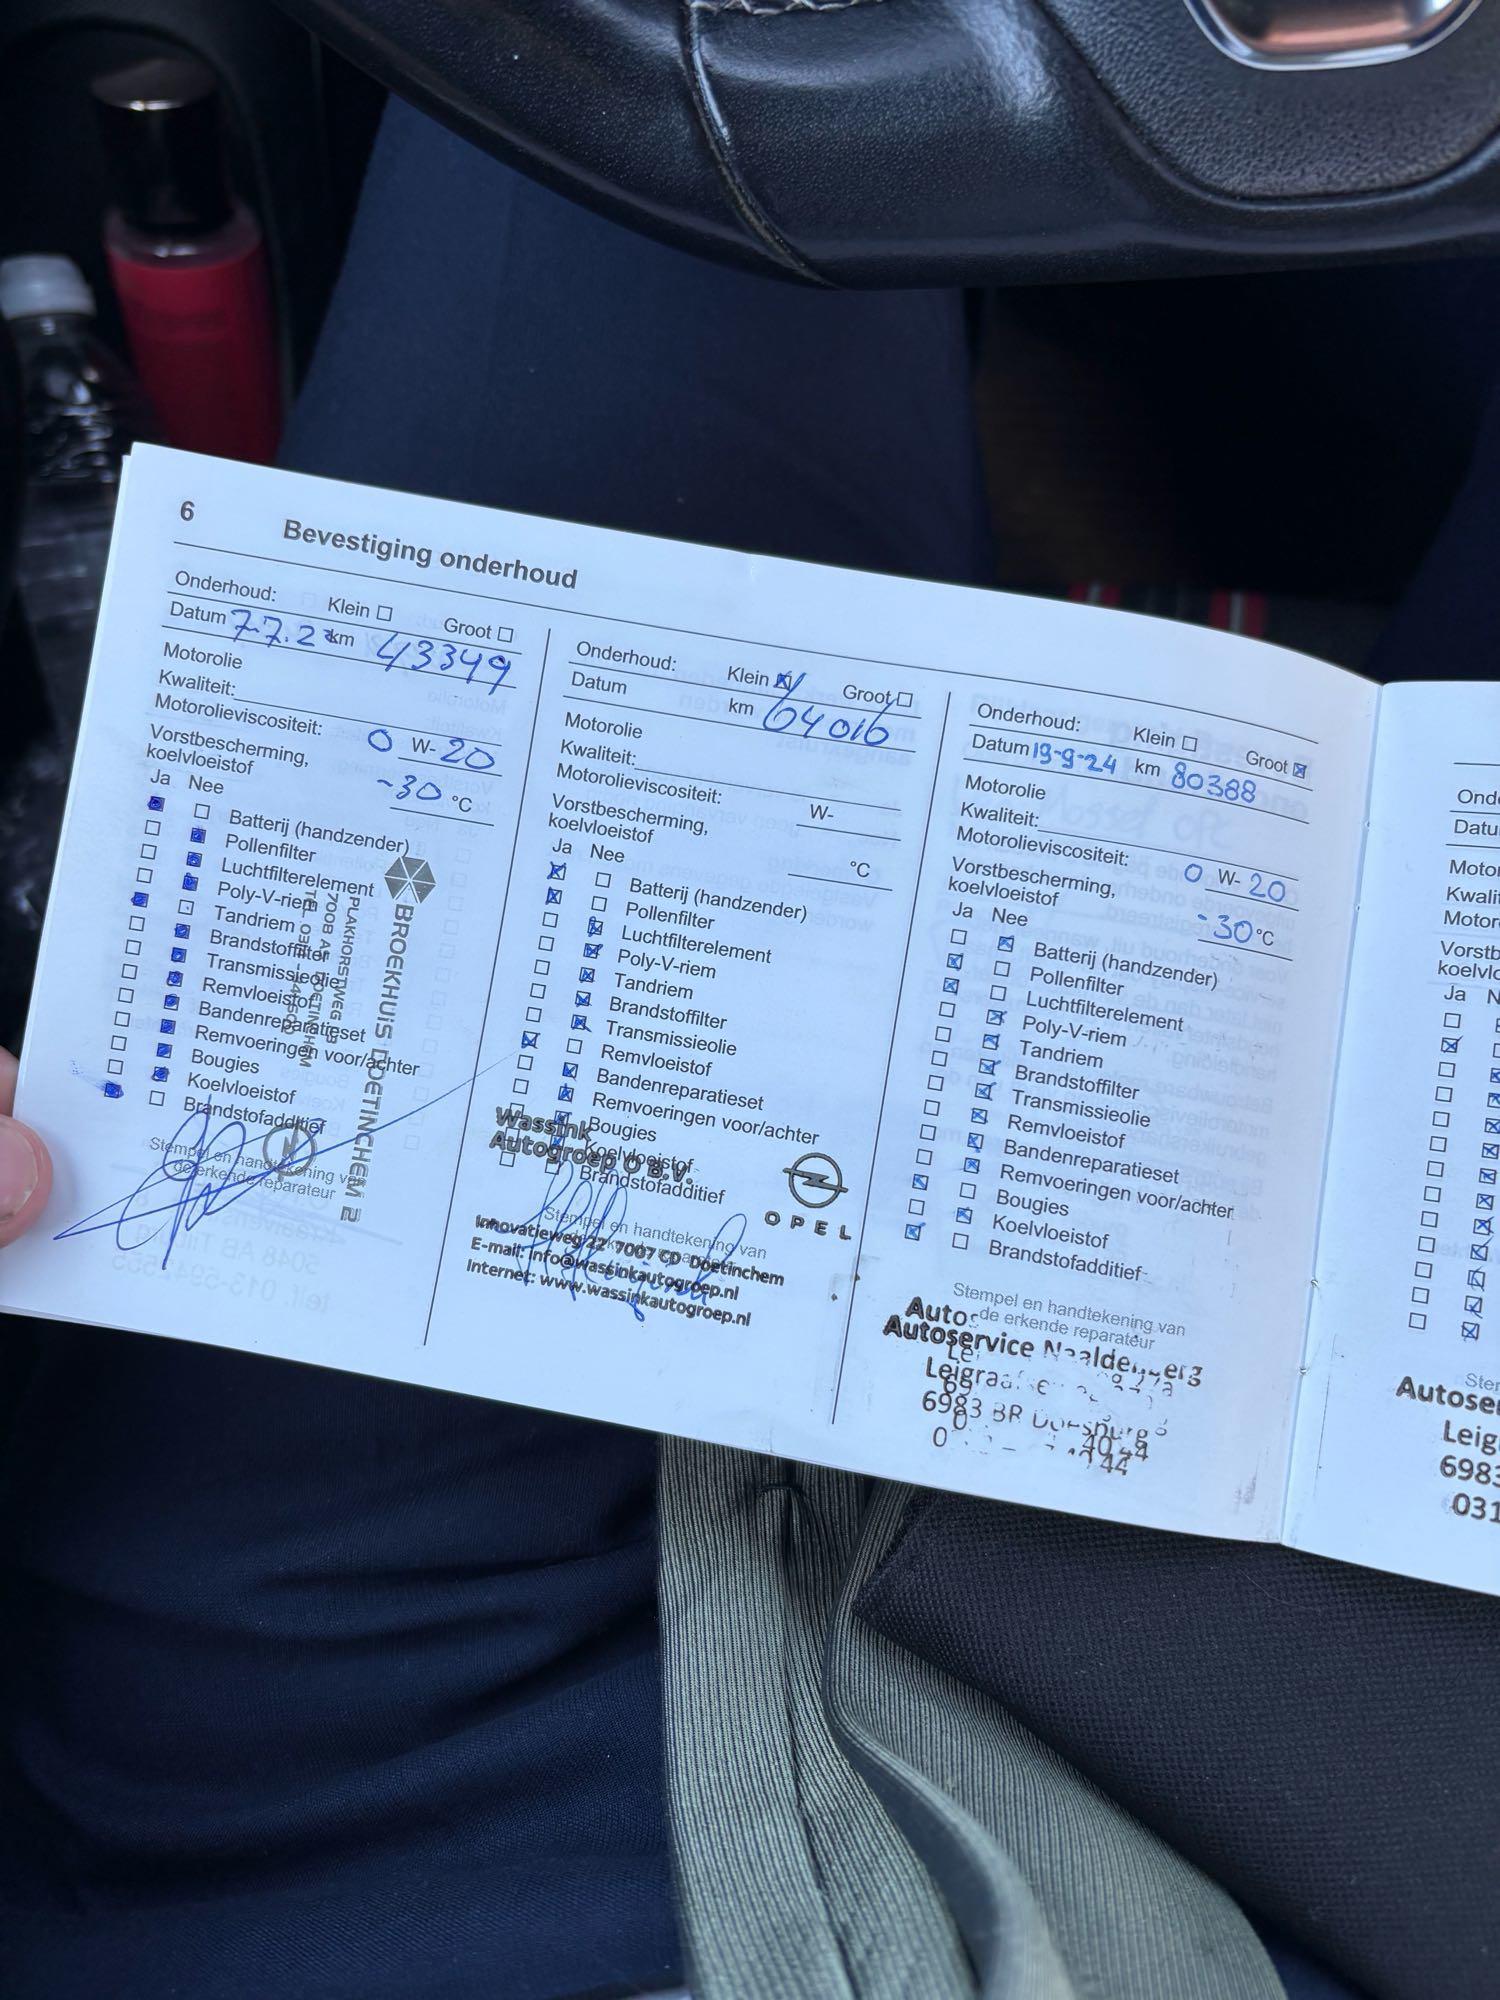 6
Bevestiging onderhoud
Onderhoud: Klein Groot
Datum 7-7-2 km 43349
Motorolie
Kwaliteit:
Motorolieviscositeit: 0 W- 20
Vorstbescherming,
koelvloeistof -30 °C
Ja Nee
Batterij (handzender)
Pollenfilter
Luchtfilterelement
Poly-V-riem
Tandriem
Brandstoffilter
Transmissieolie
Remvloeistof
Bandenreparatieset
Remvoeringen voor/achter
Bougies
Koelvloeistof
Brandstofadditief
Stempel en handtekening van
de erkende reparateur
BROEKHUIS DOETINCHEM
PLAKHORSTWEG
DOETINCHEM
Onderhoud: Klein Groot
Datum km 64016
Motorolie
Kwaliteit:
Motorolieviscositeit: W-
Vorstbescherming,
koelvloeistof °C
Ja Nee
Batterij (handzender)
Pollenfilter
Luchtfilterelement
Poly-V-riem
Tandriem
Brandstoffilter
Transmissieolie
Remvloeistof
Bandenreparatieset
Remvoeringen voor/achter
Bougies
Koelvloeistof
Brandstofadditief
Wassink
Autogroep B.V.
OPEL
Stempel en handtekening van
Innovatieweg 22 7007 CD Doetinchem
E-mail: info@wassinkautogroep.nl
Internet: www.wassinkautogroep.nl
Onderhoud: Klein Groot
Datum 19-9-24 km 80388
Motorolie
Kwaliteit:
Motorolieviscositeit: 0 W- 20
Vorstbescherming,
koelvloeistof -30 °C
Ja Nee
Batterij (handzender)
Pollenfilter
Luchtfilterelement
Poly-V-riem
Tandriem
Brandstoffilter
Transmissieolie
Remvloeistof
Bandenreparatieset
Remvoeringen voor/achter
Bougies
Koelvloeistof
Brandstofadditief
Stempel en handtekening van
de erkende reparateur
Autoservice
6983 BR
Ond
Datu
Motor
Kwali
Motor
Vorstb
koelvlo
Ja N
Ster
Autoser
Leig
6983
031